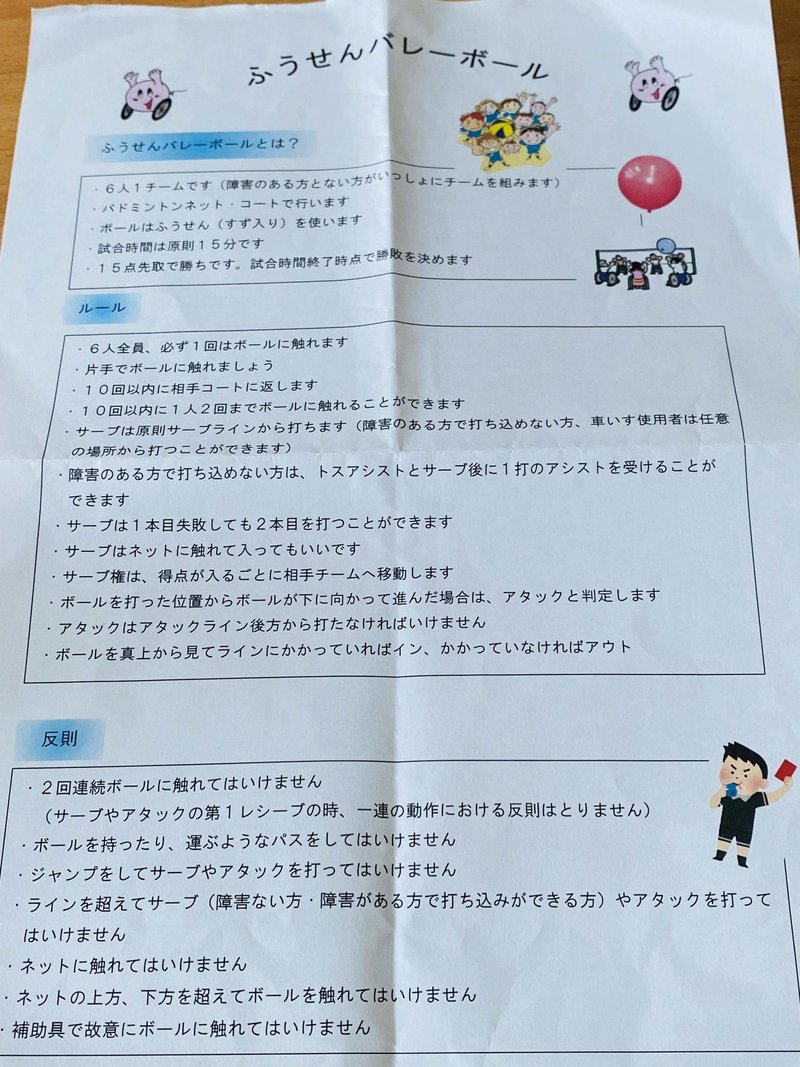 ふうせんバレーボール
ふうせんバレーボールとは？
・６人１チームです（障害のある方とない方がいっしょにチームを組みます）
・バドミントンネット・コートで行います
・ボールはふうせん（すず入り）を使います
・試合時間は原則１５分です
・１５点先取で勝ちです。試合時間終了時点で勝敗を決めます
ルール
・６人全員、必ず１回はボールに触れます
・片手でボールに触れましょう
・１０回以内に相手コートに返します
・１０回以内に１人２回までボールに触れることができます
・サーブは原則サーブラインから打ちます（障害のある方で打ち込めない方、車いす使用者は任意
の場所から打つことができます）
・障害のある方で打ち込めない方は、トスアシストとサーブ後に１打のアシストを受けることが
できます
・サーブは１本目失敗しても２本目を打つことができます
・サーブはネットに触れて入ってもいいです
・サーブ権は、得点が入るごとに相手チームへ移動します
・ボールを打った位置からボールが下に向かって進んだ場合は、アタックと判定します
・アタックはアタックライン後方から打たなければいけません
・ボールを真上から見てラインにかかっていればイン、かかっていなければアウト
反則
・２回連続ボールに触れてはいけません
（サーブやアタックの第１レシーブの時、一連の動作における反則はとりません）
・ボールを持ったり、運ぶようなパスをしてはいけません
・ジャンプをしてサーブやアタックを打ってはいけません
・ラインを超えてサーブ（障害ない方・障害がある方で打ち込みができる方）やアタックを打って
はいけません
・ネットに触れてはいけません
・ネットの上方、下方を超えてボールを触れてはいけません
・補助具で故意にボールに触れてはいけません